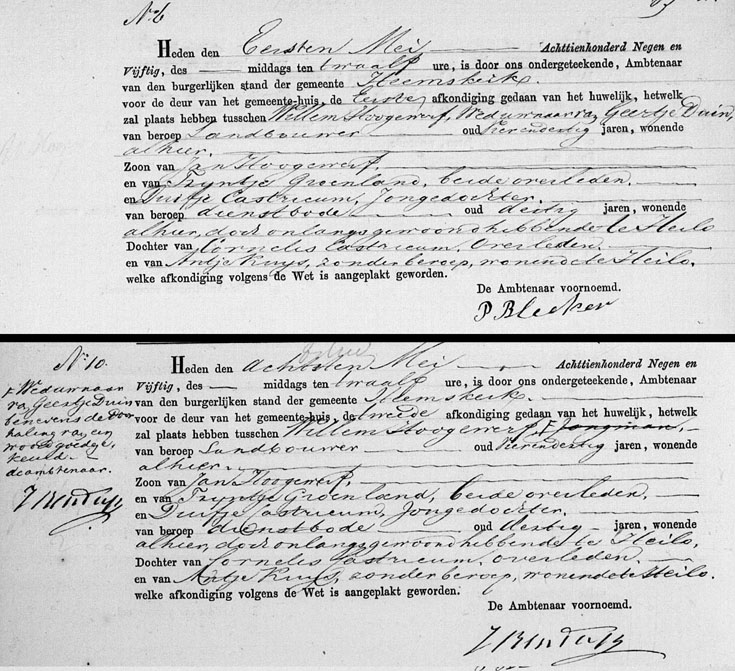 No 6
Heden den Eersten Mei Achttienhonderd Negen en
Vijftig, des middags ten twaalf ure, is door ons ondergeteekende, Ambtenaar
van den burgerlijken stand der gemeente Heemskerk.
voor de deur van het gemeente-huis, de Eerste afkondiging gedaan van het huwelijk, hetwelk
zal plaats hebben tusschen Willem Hoogewerf, Weduwnaar van Geertje Duin,
van beroep Landbouwer oud Vierendertig jaren, wonende
alhier.
Zoon van Jan Hoogewerf,
en van Tryntje Groenland, beide overleden.
en Duifje Castricum, Jongedochter.
van beroep dienstbode oud dertig jaren, wonende
alhier, doch onlangs gewoond hebbende te Heilo
Dochter van Cornelis Castricum, overleden.
en van Antje Kuys, zonder beroep, wonende te Heilo.
welke afkondiging volgens de Wet is aangeplakt geworden.
De Ambtenaar voornoemd.
P Bleeker
No 10.
Heden den achtsten Mei Achttienhonderd Negen en
Vijftig, des middags ten twaalf ure, is door ons ondergeteekende, Ambtenaar
van den burgerlijken stand der gemeente Heemskerk.
voor de deur van het gemeente-huis, de tweede afkondiging gedaan van het huwelijk, hetwelk
zal plaats hebben tusschen Willem Hoogewerf, F Jongman,
van beroep Landbouwer oud Vierendertig jaren, wonende
alhier.
Zoon van Jan Hoogewerf,
en van Tryntje Groenland, beide overleden.
en Duifje Castricum, Jongedochter.
van beroep dienstbode oud dertig jaren, wonende
alhier, doch onlangs gewoond hebbende te Heilo,
Dochter van Cornelis Castricum, overleden.
en van Antje Kuys, zonder beroep, wonende te Heilo.
welke afkondiging volgens de Wet is aangeplakt geworden.
De Ambtenaar voornoemd.
F Weduwnaar
van Geertje Duin
benevens de door
haling van een
woord goedge,
keurd.
de ambtenaar.